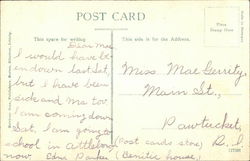 POST CARD
This space for writing
This side is for the Address.
Place
Stamp Here
Dear Mae
I would have be
en down last Sat.
but I have been
sick and Ma too
I am coming down
Sat. I am going to
school in Attleboro
now Edna Parker
Miss Mae Gerrity,
Main St.,
Pawtucket,
(Post cards store) R. I.
house)